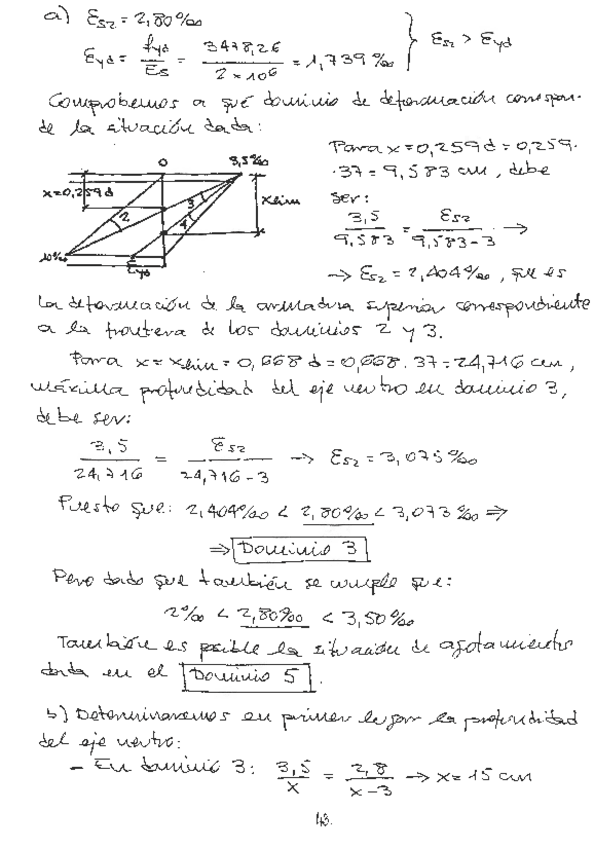 a) εs2 = 2,80‰
εyd = fyd/Es = 3478,26/2×10⁶ = 1,739‰ } εs2 > εyd
Comprobemos a qué dominio de deformación correspon-
de la situación dada:
0 3,5‰
x=0,259d
xlim
2 3 4
10‰ εyd
Para x=0,259d=0,259·
·37=9,583 cm, debe
ser:
3,5/9,583 = εs2/9,583-3 →
→ εs2=2,404‰, que es
la deformación de la armadura superior correspondiente
a la frontera de los dominios 2 y 3.
Para x=xlim=0,668 d=0,668·37=24,716 cm,
máxima profundidad del eje neutro en dominio 3,
debe ser:
3,5/24,716 = εs2/24,716-3 → εs2=3,075‰
Puesto que: 2,404‰ < 2,80‰ < 3,073‰ ⇒
⇒ Dominio 3
Pero dado que también se cumple que:
2‰ < 2,80‰ < 3,50‰
También es posible la situación de agotamiento
dada en el Dominio 5.
b) Determinaremos en primer lugar la profundidad
del eje neutro:
- En dominio 3: 3,5/x = 2,8/x-3 → x=15 cm
43.